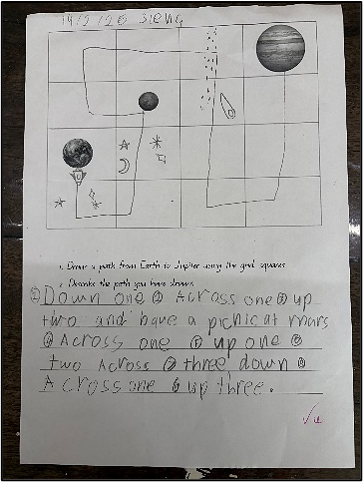 19/2/20 Sieng
1. Draw a path from Earth to Jupiter using the grid squares
2. Describe the path you have drawn
① Down one ② Across one ③ up
two and have a picnic at mars
④ Across one ⑤ up one ⑥
two Across ⑦ three down ⑧
Across one 6 up three.